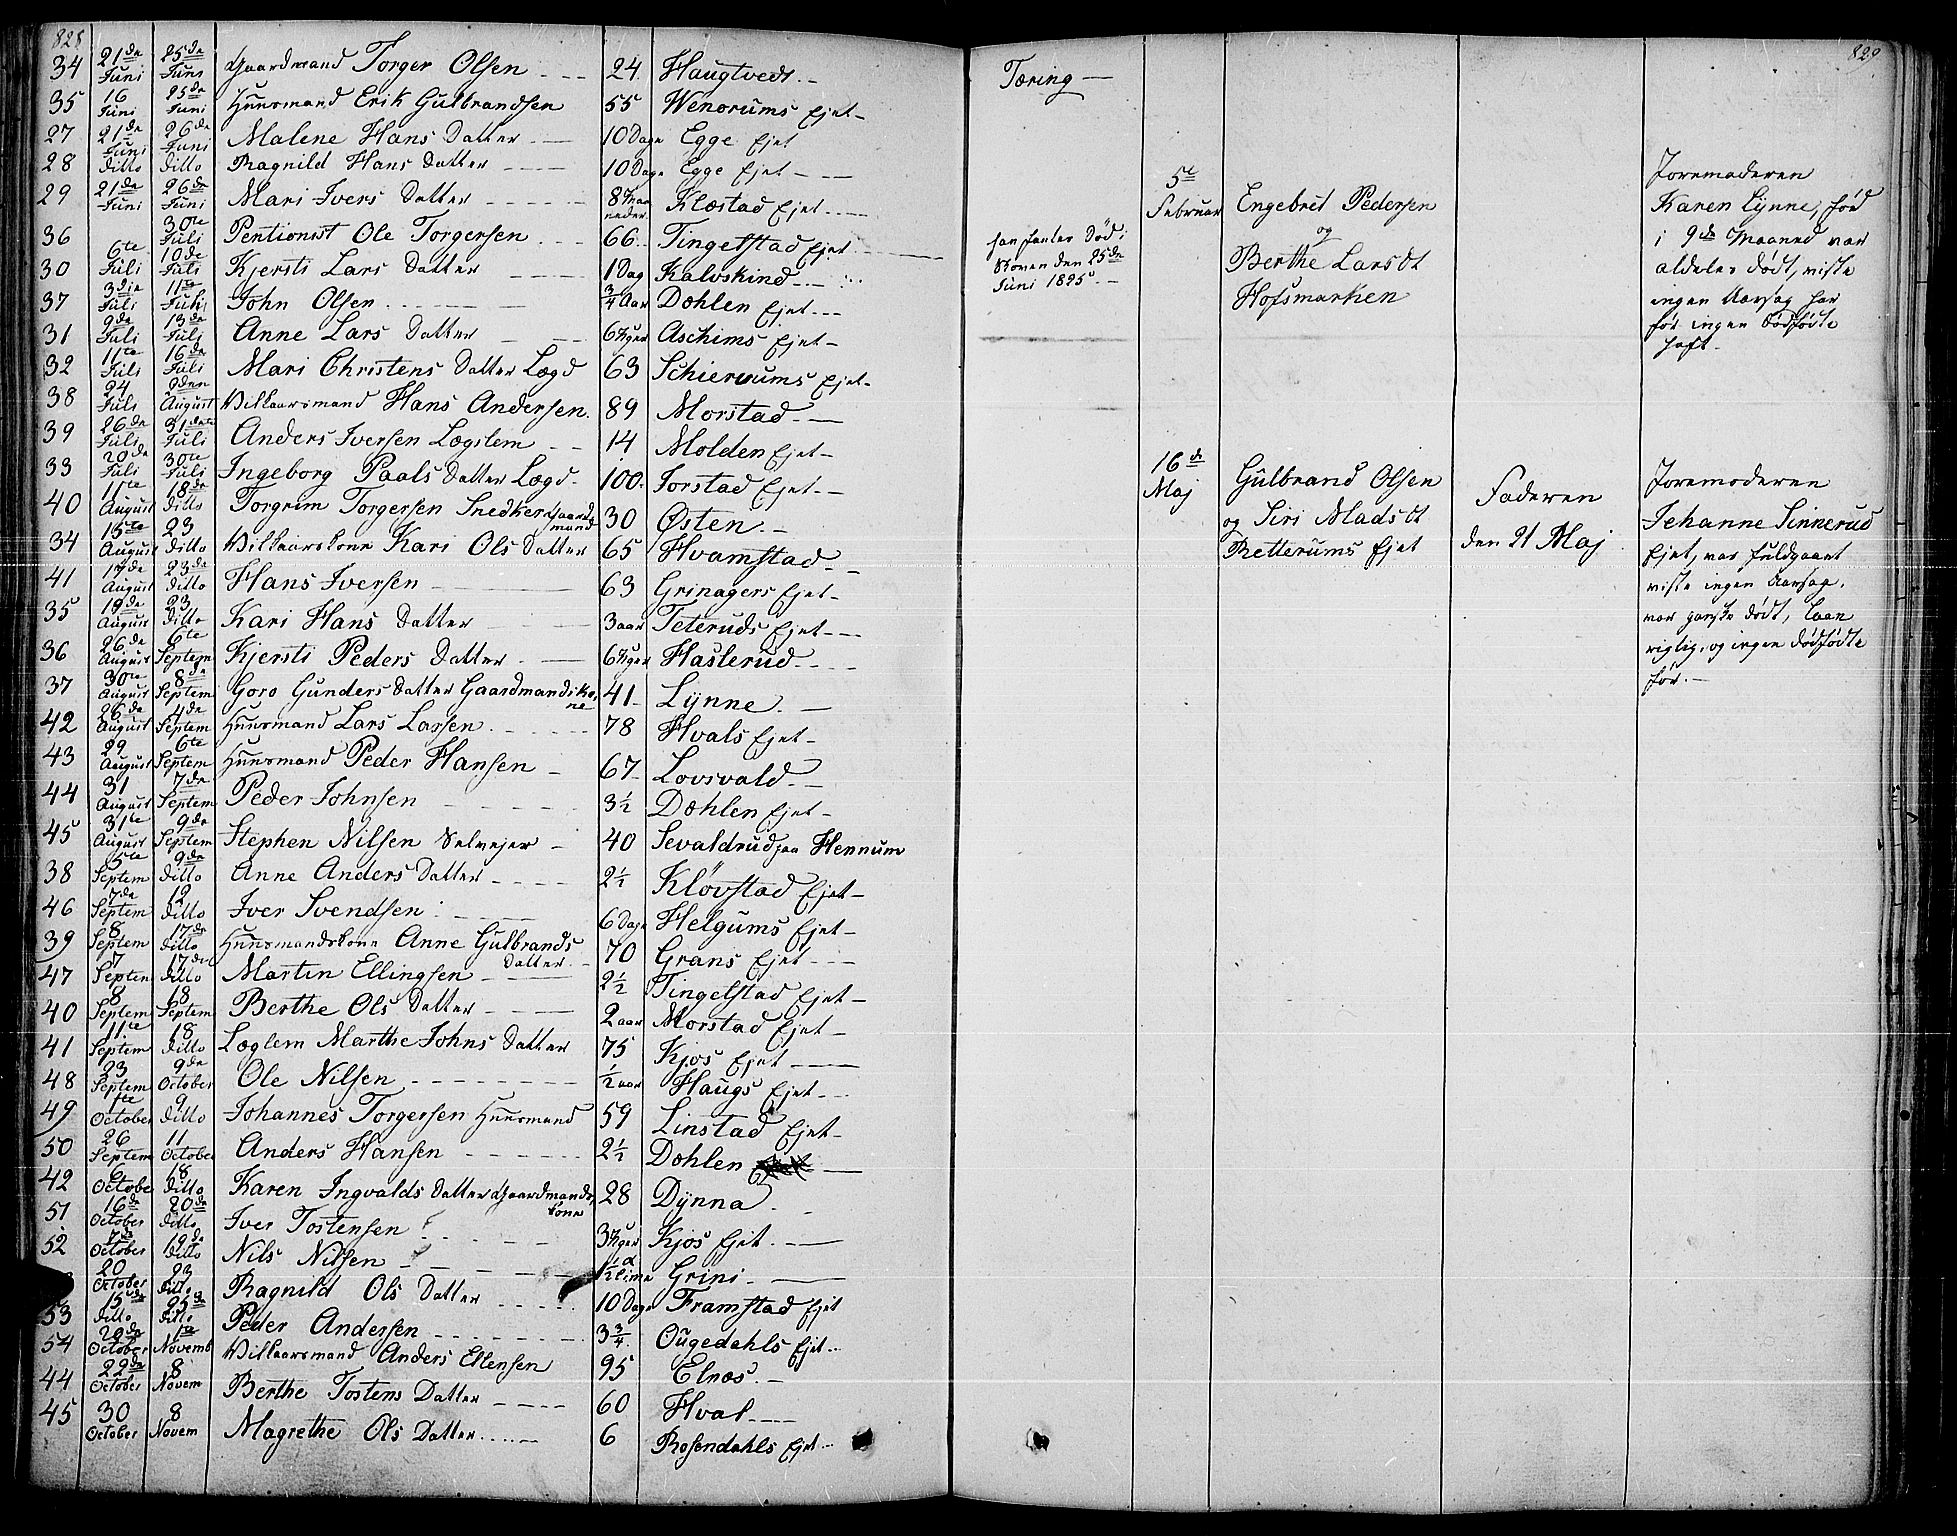 828
34 21de Juni 25de Juni Gaardmand Torger Olsen 24 Haugtvedt
35 16 Juni 25de Juni Huusmand Erik Gulbrandsen 55 Wenorums Ejet
27 21de Juni 26de Juni Malene Hans Datter 10 Dage Egge Ejet
28 ditto ditto Ragnild Hans Datter 10 Dage Egge Ejet
29 21de Juni 26de Juni Mari Ivers Datter 8 Maaneder Klæstad Ejet
36 30te Juli Pentionist Ole Torgersen 66 Tingelstad Ejet
30 6te Juli 10de Juli Kjersti Lars Datter 1 Dag Kalvskind
37 3die Juli 11te Juli John Olsen 3/4 Aar Dæhlen Ejet
31 9de Juli 13de Juli Anne Lars Datter 6 Uger Aschims Ejet
32 11te Juli 16de Juli Mari Christens Datter Lægd 63 Schieruums Ejet
38 24 Juli 2den August Vilkaarsmand Hans Andersen 89 Morstad
39 26de Juli 31dete Juli Anders Iversen Lægslem 14 Molden Ejet
33 20de Juli 30te Juli Ingeborg Paals Datter Lægd 100 Jorstad Ejet
40 11te August 18de ditto Torgrim Torgersen Snedker Gaardmand 30 Østen
34 15te August 23 ditto Vilkaarskone Kari Ols Datter 65 Hvamstad
41 17de August 23de ditto Hans Iversen 63 Grinagers Ejet
35 19de August 23 ditto Kari Hans Datter 3 aar Teteruds Ejet
36 26de August 6te Septem Kjersti Peders Datter 6 Uger Hasterud
37 30te August 8de Septem Goro Gunders Datter Gaardmandskone 41 Lynne
42 26de August 4de Septem Huusmand Lars Larsen 78 Hvals Ejet
43 29 August 6te Septem Huusmand Peder Hansen 67 Lovsvald
44 31 August 7de Septem Peder Johnsen 3 1/2 Dæhlen Ejet
45 31te August 9de Septem Stephen Nilsen Selvejer 40 Sevaldrud paa Hennum
38 5te Septem 9de ditto Anne Anders Datter 2 1/2 Kløvstad Ejet
46 7de Septem 12 ditto Iver Svendsen 6 Dage Helgums Ejet
39 8 Septem 17de ditto Huusmandskone Anne Gulbrands Datter 70 Grans Ejet
47 7 Septem 17de ditto Martin Ellingsen 2 1/2 Tingelstad Ejet
40 8 Septem 18 Septem Berthe Ols Datter 2 aar Morstad Ejet
41 11te Septem 18 ditto Læglem Marthe Johns Datter 75 Kjos Ejet
48 23 Septem 9de October Ole Nilsen 1/2 aar Haugs Ejet
49 1te October 9 ditto Johannes Torgersen Huusmand 59 Linstad Ejet
50 26 Septem 11 October Anders Hansen 2 1/2 Dæhlen
42 6 Octobe 18 ditto Karen Ingvalds Datter Gaardmandskone 28 Dynna
51 16de October 20de ditto Iver Tostensen 3 Uger Kjos Ejet
52 7de October 19de ditto Nils Nilsen 1/2 Time Grini
20 October 23 ditto Ragnild Ols Datter 10 Dage Framstad Ejet
53 15de ditto 25de ditto Peder Andersen 3 3/4 Ougedahls Ejet
54 20de October 1te Novemb Vilkaarsmand Anders Ellensen 95 Elnæs
44 22de October 8 Novem Berthe Tostens Datter 60 Hval
45 30 October 8 Novem Magrethe Ols Datter 6 Rosendahls Ejet
829
Tæring
han fantes død i
Skoven den 25de
Juni 1825
5te
Februar
Engebret Pedersen
og
Berthe Larsdt
Hofsmarken
Joremoderen
Karen Lynne, fød
i 9de Maaned var
aldeles dødt, viste
ingen Aarsag har
før ingen dødfødte
haft
16de
Maj
Gulbrand Olsen
og Siri Madsdt
Retterums Ejet
Faderen
den 21 Maj
Joremoderen
Jehanne Sinnerud
Ejet, var fuldgaaet
viste ingen Aarsag,
var ganske dødt, Laae
rigtig, og ingen dødfødte
før.